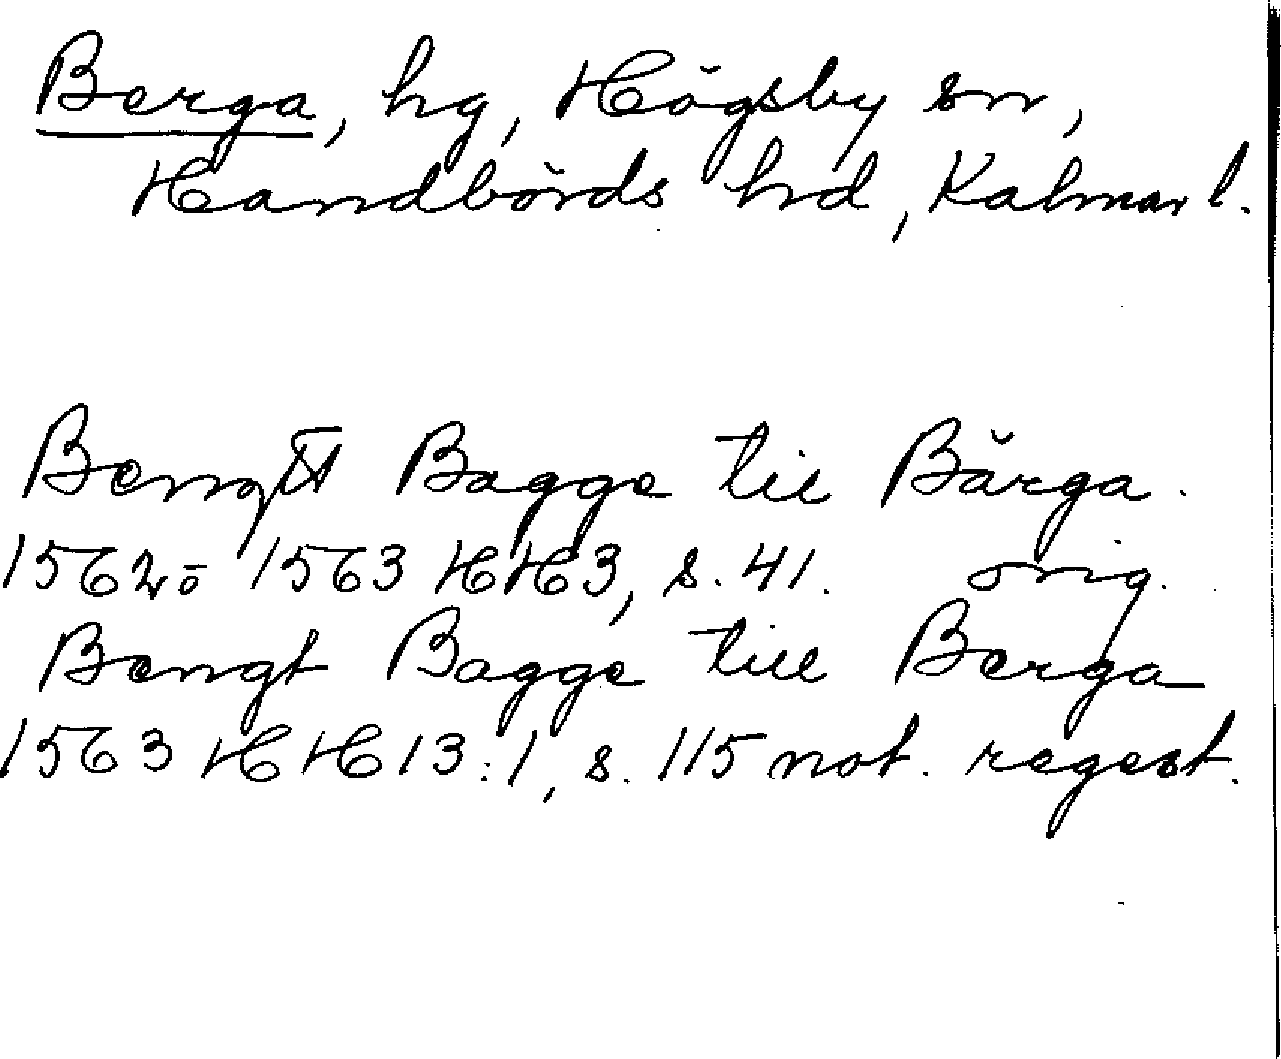 Berga, hg, Högsby sn,
Handbörds hd, Kalmar l.
Bengtt Bagge til Bärga.
1562 ö 1563 HH3, s. 41. orig.
Bengt Bagge till Berga
1563 HH13:1, s. 115 not. regest.